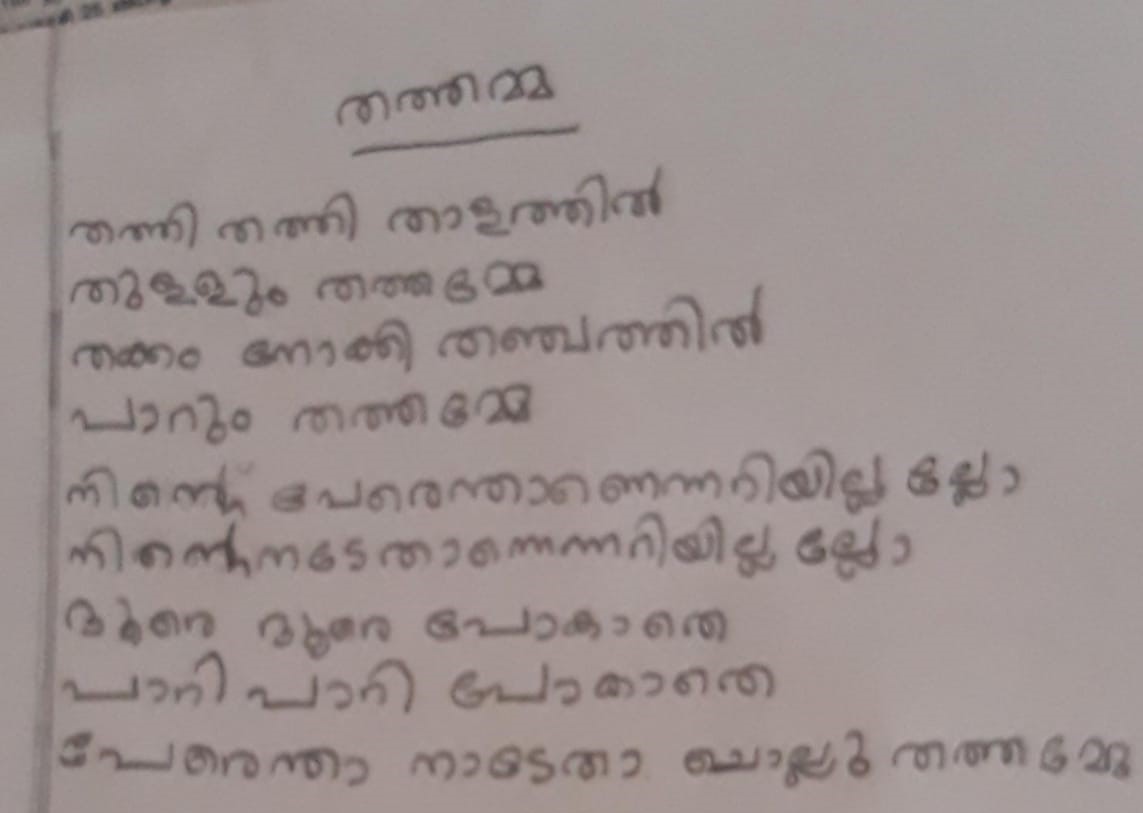 തത്തമ്മ
തത്തി തത്തി താളത്തിൽ
തുള്ളും തത്തമ്മേ
തക്കം നോക്കി തഞ്ചത്തിൽ
പാറും തത്തമ്മേ
നിന്റെ പേരെന്താണെന്നറിയില്ലല്ലോ
നിന്റെ നാടേതാണെന്നറിയില്ലല്ലോ
ദൂരെ ദൂരെ പോകാതെ
പാറി പാറി പോകാതെ
പേരെന്താ നാടേതാ ചൊല്ലു തത്തമ്മേ